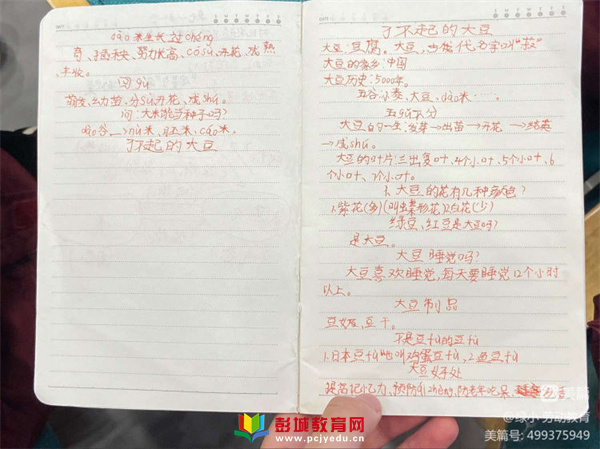 dào米生长过chéng
育、插秧、努力长高、cósú、开花、成熟
丰收。
回gù
萌发、出苗、分sú开花、成shú。
问:大米能当种子吗?
dào谷、→nú米、胚米、cáo米。
了不起的大豆
了不起的大豆
大豆:豆腐。大豆,古代名字叫“菽”
大豆的家乡:中国
大豆历史:5000年。
五谷:小麦、大豆、dào米……
五gú不分
大豆的一生:发芽→出苗→开花→结荚
→成shú。
大豆的叶片:三出复叶,4个小叶,5个小叶,6
个小叶、7个小叶。
1、大豆的花有几种颜色?
1.紫花(多)(叫蝶形花)2.白花(少)
绿豆、红豆是大豆吗?
是大豆。
大豆睡觉吗?
大豆喜欢睡觉,每天要睡觉12个小时
以上。
大豆制品
豆奶、豆干。
不是豆fú的豆fú
1.日本豆fú也叫鸡蛋豆fú,2.鱼豆fú
大豆好处
提高记忆力、预防
彭城教育网
www.pcjyedu.cn
美篇
@绿小劳动教育
美篇号: 499375949